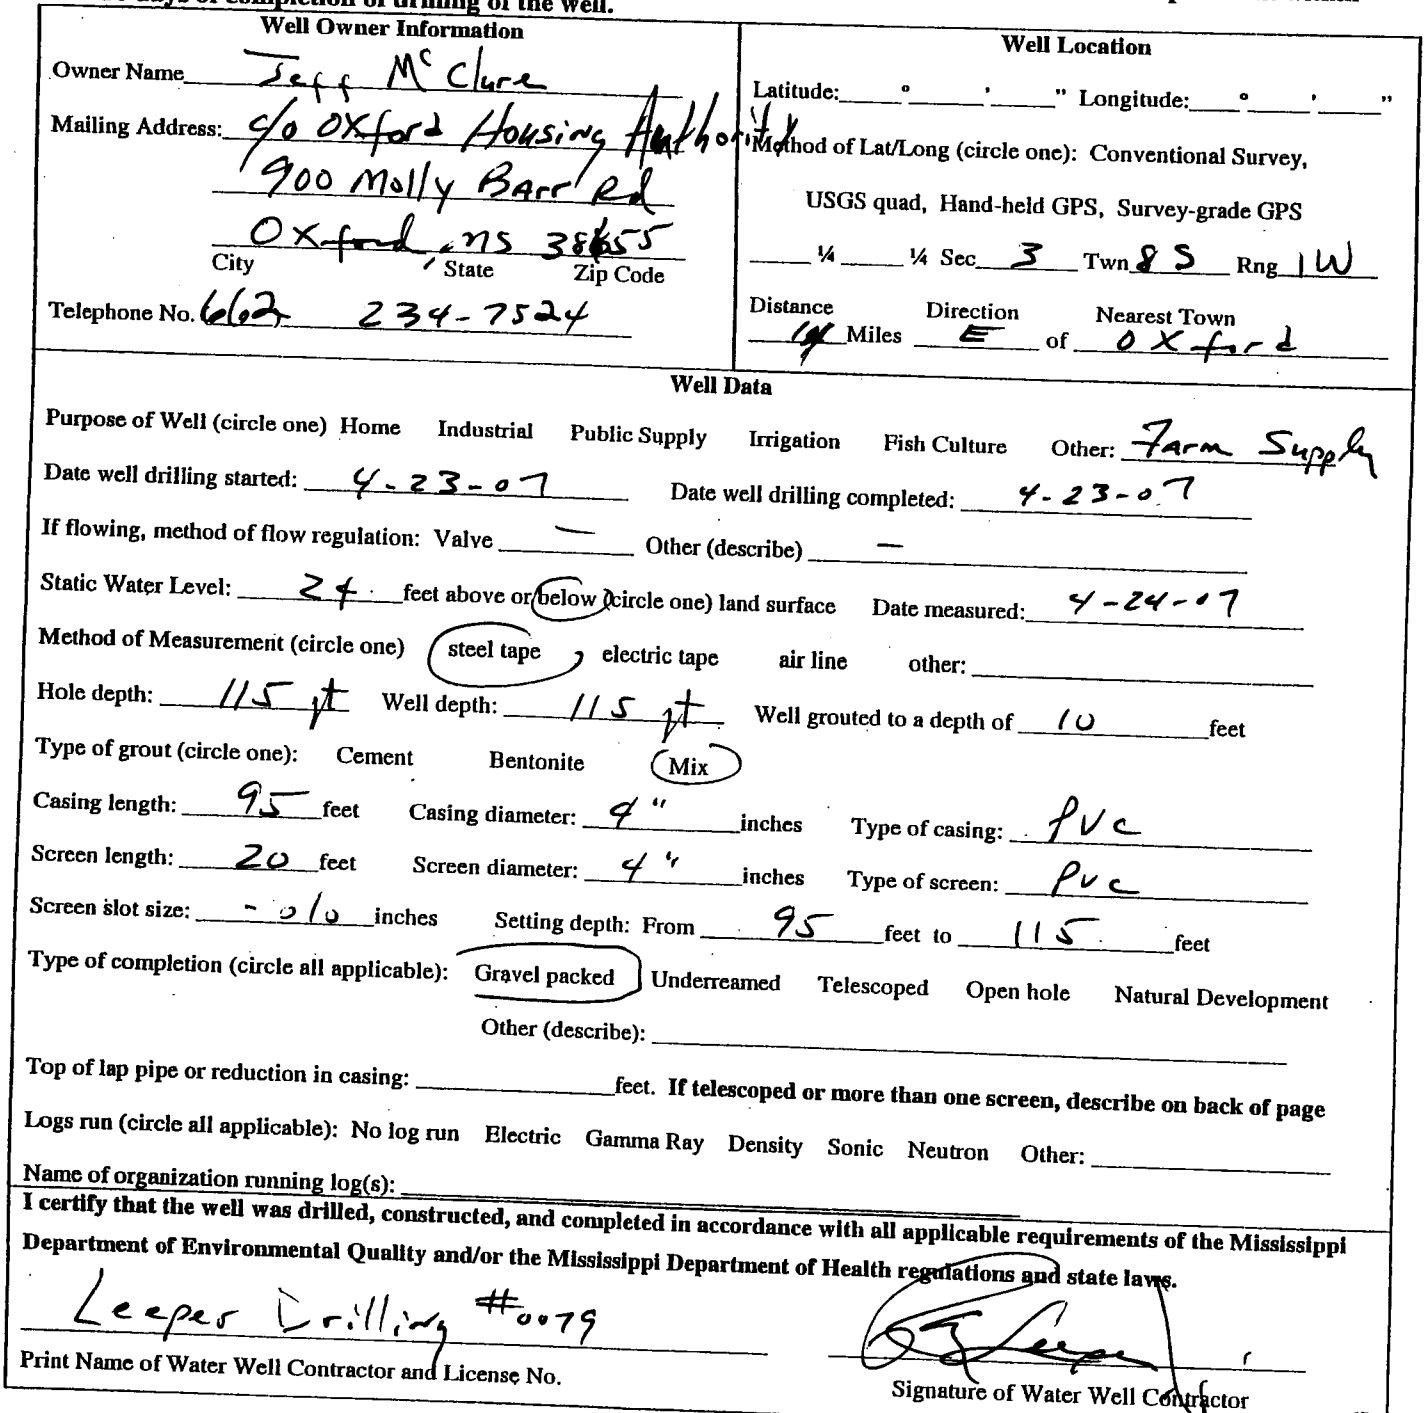 days of completion of drilling of the well.
Well Owner Information
Owner Name Jeff McClure
Mailing Address: c/o Oxford Housing Authority
900 Molly Barr Rd
Oxford, ms 38655
City State Zip Code
Telephone No. 662 234-7524
Well Location
Latitude: ° ' " Longitude: ° ' "
Method of Lat/Long (circle one): Conventional Survey,
USGS quad, Hand-held GPS, Survey-grade GPS
¼ ¼ Sec 3 Twn 8 S Rng 1 W
Distance Direction Nearest Town
Miles E of Oxford
Well Data
Purpose of Well (circle one) Home Industrial Public Supply Irrigation Fish Culture Other: Farm Supply
Date well drilling started: 4-23-07 Date well drilling completed: 4-23-07
If flowing, method of flow regulation: Valve — Other (describe) —
Static Water Level: 24 feet above or below (circle one) land surface Date measured: 4-24-07
Method of Measurement (circle one) steel tape, electric tape air line other:
Hole depth: 115 ft Well depth: 115 ft Well grouted to a depth of 10 feet
Type of grout (circle one): Cement Bentonite Mix
Casing length: 95 feet Casing diameter: 4" inches Type of casing: PVC
Screen length: 20 feet Screen diameter: 4" inches Type of screen: PVC
Screen slot size: .010 inches Setting depth: From 95 feet to 115 feet
Type of completion (circle all applicable): Gravel packed Underreamed Telescoped Open hole Natural Development
Other (describe):
Top of lap pipe or reduction in casing: feet. If telescoped or more than one screen, describe on back of page
Logs run (circle all applicable): No log run Electric Gamma Ray Density Sonic Neutron Other:
Name of organization running log(s):
I certify that the well was drilled, constructed, and completed in accordance with all applicable requirements of the Mississippi
Department of Environmental Quality and/or the Mississippi Department of Health regulations and state laws.
Leeper Drilling #0079
Print Name of Water Well Contractor and License No.
Leeper
Signature of Water Well Contractor